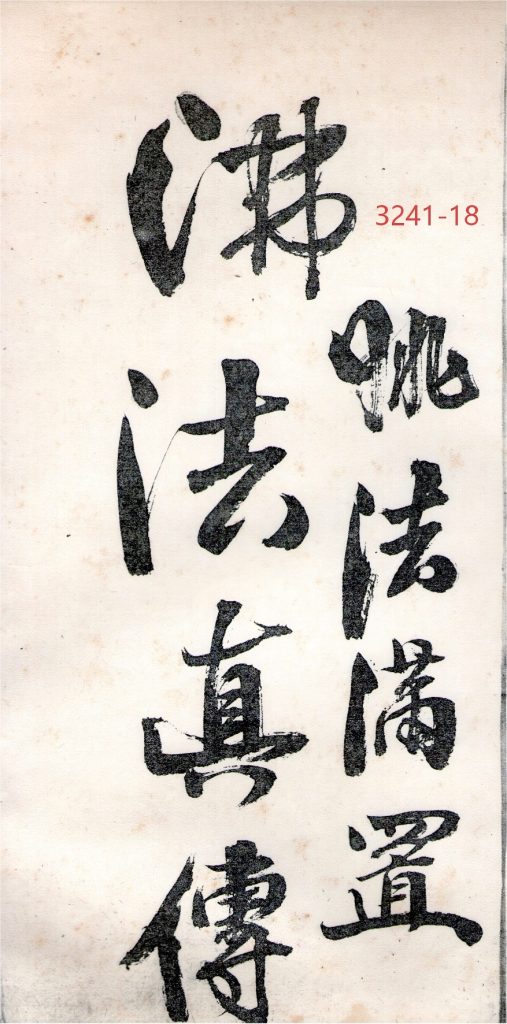 3241-18
法滿置
沸法真傳